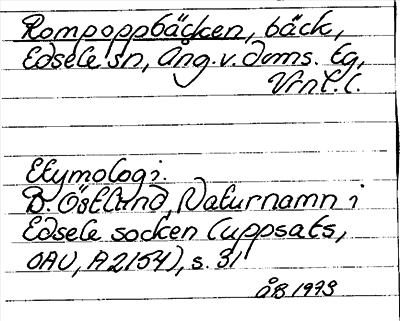 Rompoppbäcken, bäck,
Edsele sn, Ång. v. doms. lg,
Vrnl. l.
Etymologi.
B. Östlund, Naturnamn i
Edsele socken (uppsats,
OAU, A2154), s. 31
ÅB 1973